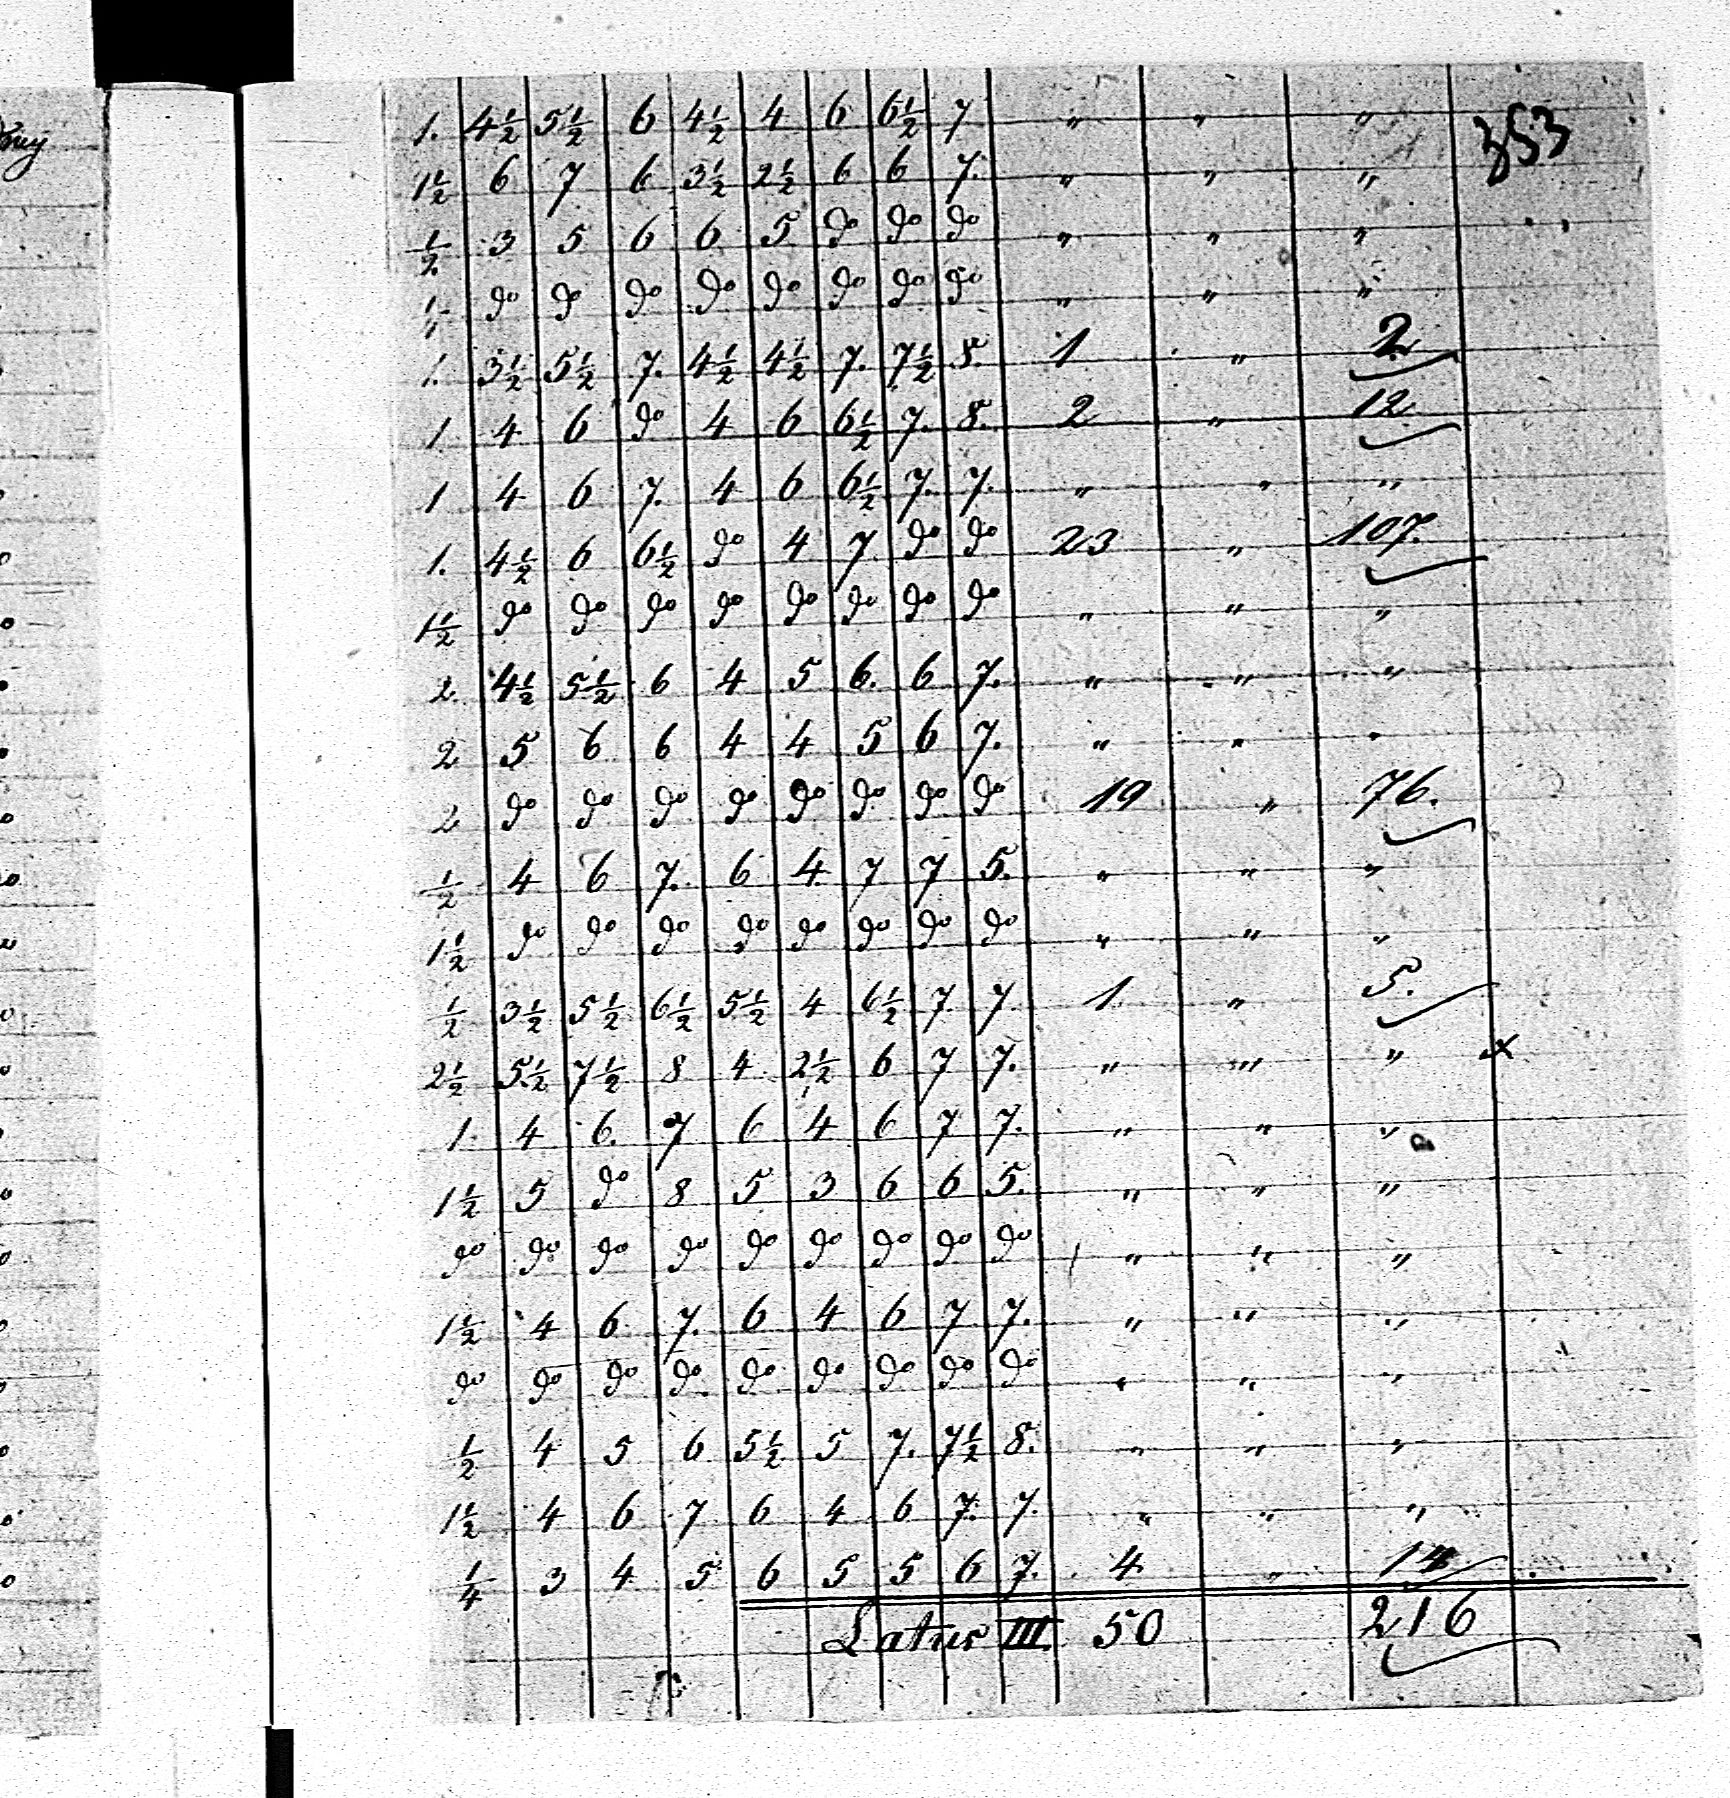 353
1. 4½ 5½ 6 4½ 4 6 6½ 7 " " "
1½ 6 7 6 3½ 2½ 6 6 7. " " "
½ 3 5 6 6 5 do do do " " "
do do do do do do do do " " "
1. 3½ 5½ 7. 4½ 4½ 7. 7½ 8. 1 " 2
1 4 6 do 4 6 6½ 7. 8. 2 " 12
1 4 6 7. 4 6 6½ 7. 7. " " "
1. 4½ 6 6½ do 4 7 do do 23 " 107.
1½ do do do do do do do do " " "
2 4½ 5½ 6 4 5 6. 6 7. " " "
2 5 6 6 4 4 5 6 7. " " "
2 do do do do do do do do 19 " 76.
½ 4 6 7. 6 4 7 7 5. " " "
1½ do do do do do do do do " " "
½ 3½ 5½ 6½ 5½ 4 6½ 7 7. 1. " 5.
2½ 5½ 7½ 8 4 2½ 6 7 7. " " " x
1. 4 6. 7 6 4 6 7 7. " " "
1½ 5 do 8 5 3 6 6 5. " " "
do do do do do do do do do " " "
1½ 4 6 7. 6 4 6 7 7. " " "
do do do do do do do do do " " "
½ 4 5 6 5½ 5 7. 7½ 8. " " "
1½ 4 6 7 6 4 6 7. 7. " " "
¼ 3 4 5 6 5 5 6 7. 4 " 14
Latus III. 50 216